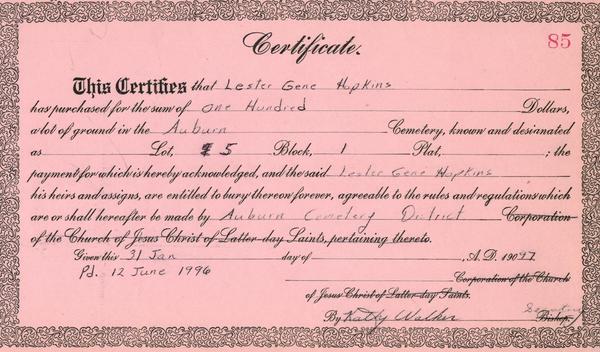 Certificate.
85
This Certifies that Lester Gene Hopkins
has purchased for the sum of One Hundred Dollars,
a lot of ground in the Auburn Cemetery, known and designated
as Lot, 5 Block, 1 Plat, ; the
payment for which is hereby acknowledged, and the said Lester Gene Hopkins
his heirs and assigns, are entitled to bury thereon forever, agreeable to the rules and regulations which
are or shall hereafter be made by Auburn Cemetery District Corporation
of the Church of Jesus Christ of Latter-day Saints, pertaining thereto.
Given this 31 Jan day of , A.D. 1997
Pd. 12 June 1996
Corporation of the Church
of Jesus Christ of Latter-day Saints.
By Kathy Walker Bishop